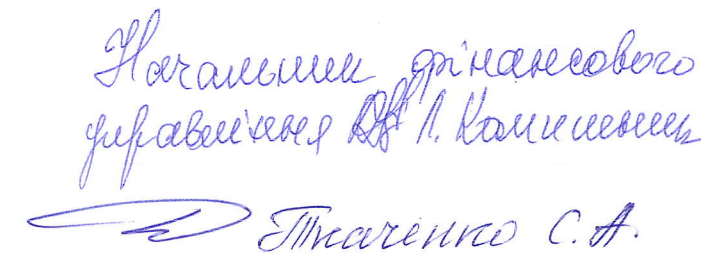 Начальник фінансового
управління Л. Камишник
Ткаченко С. А.